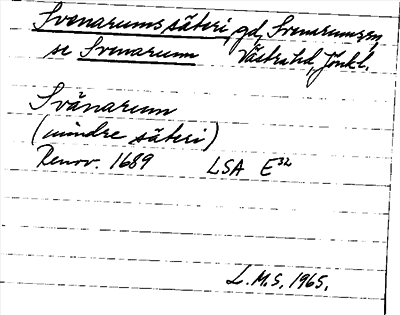 Svenarums säteri, gd, Svenarums sn,
se Svenarum Västra hd, Jönk. l.
Svänarum
(mindre säteri)
Renov. 1689 LSA E³²
L.M.S. 1965.